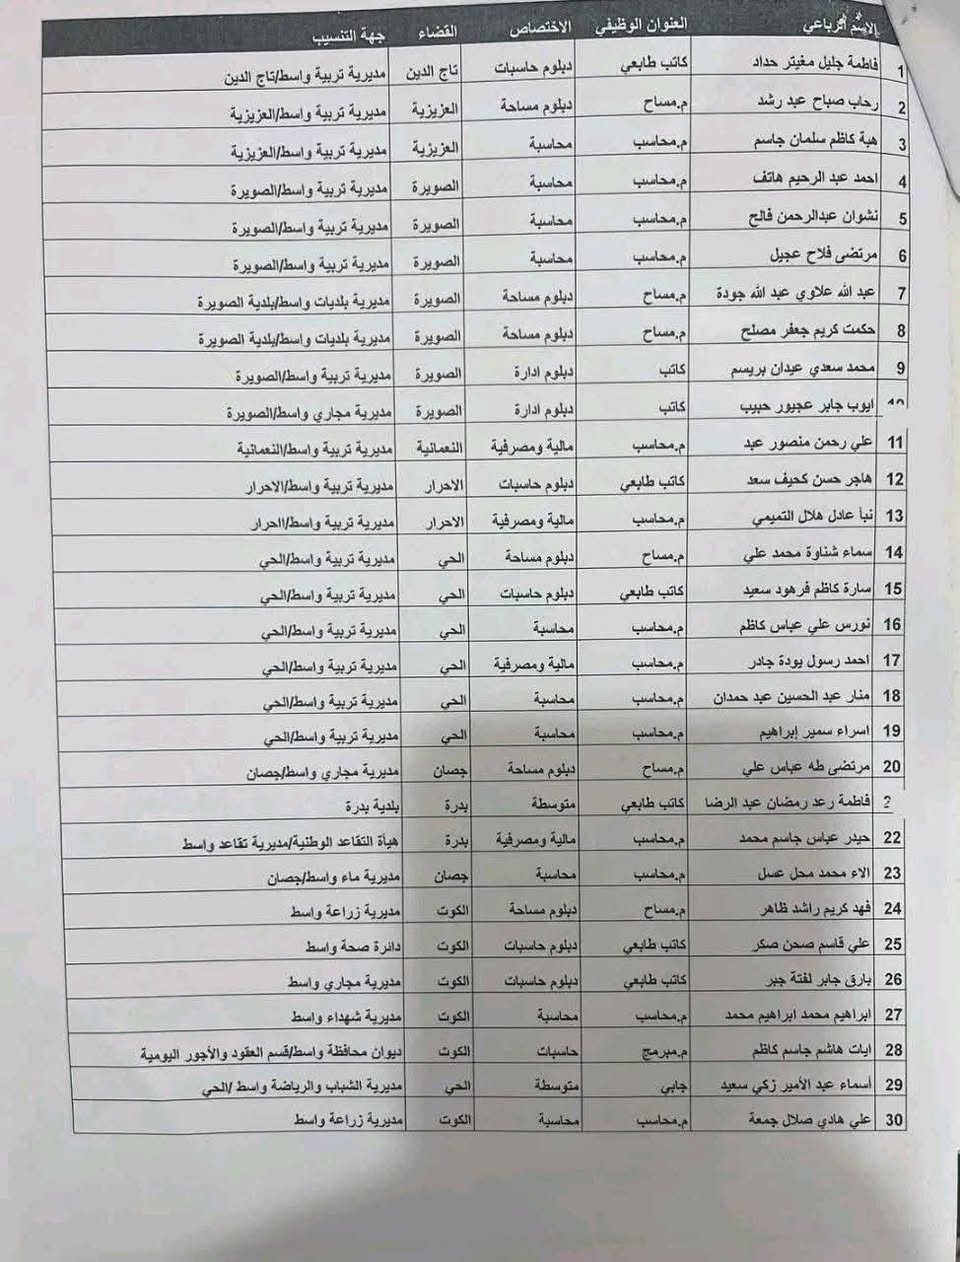 الاسم الرباعي العنوان الوظيفي الاختصاص القضاء جهة التنسيب
1 فاطمة جليل مغيتر حداد كاتب طابعي دبلوم حاسبات تاج الدين مديرية تربية واسط/تاج الدين
2 رحاب صباح عبد رشد م.مساح دبلوم مساحة العزيزية مديرية تربية واسط/العزيزية
3 هبة كاظم سلمان جاسم م.محاسب محاسبة العزيزية مديرية تربية واسط/العزيزية
4 احمد عبد الرحيم هاتف م.محاسب محاسبة الصويرة مديرية تربية واسط/الصويرة
5 نشوان عبدالرحمن فالح م.محاسب محاسبة الصويرة مديرية تربية واسط/الصويرة
6 مرتضى فلاح عجيل م.محاسب محاسبة الصويرة مديرية تربية واسط/الصويرة
7 عبد الله علاوي عبد الله جودة م.مساح دبلوم مساحة الصويرة مديرية بلديات واسط/بلدية الصويرة
8 حكمت كريم جعفر مصلح م.مساح دبلوم مساحة الصويرة مديرية بلديات واسط/بلدية الصويرة
9 محمد سعدي عيدان بريسم كاتب دبلوم ادارة الصويرة مديرية تربية واسط/الصويرة
10 ايوب جابر عجيور حبيب كاتب دبلوم ادارة الصويرة مديرية مجاري واسط/الصويرة
11 علي رحمن منصور عبد م.محاسب مالية ومصرفية النعمانية مديرية تربية واسط/النعمانية
12 هاجر حسن كحيف سعد كاتب طابعي دبلوم حاسبات الاحرار مديرية تربية واسط/الاحرار
13 نبأ عادل هلال التميمي م.محاسب مالية ومصرفية الاحرار مديرية تربية واسط/ااحرار
14 سماء شناوة محمد علي م.مساح دبلوم مساحة الحي مديرية تربية واسط/الحي
15 سارة كاظم فرهود سعيد كاتب طابعي دبلوم حاسبات الحي مديرية تربية واسط/الحي
16 نورس علي عباس كاظم م.محاسب محاسبة الحي مديرية تربية واسط/الحي
17 احمد رسول يودة جادر م.محاسب مالية ومصرفية الحي مديرية تربية واسط/الحي
18 منار عبد الحسين عبد حمدان م.محاسب محاسبة الحي مديرية تربية واسط/الحي
19 اسراء سمير إبراهيم م.محاسب محاسبة الحي مديرية تربية واسط/الحي
20 مرتضى طه عباس علي م.مساح دبلوم مساحة جصان مديرية مجاري واسط/جصان
2 فاطمة رعد رمضان عبد الرضا كاتب طابعي متوسطة بدرة بلدية بدرة
22 حيدر عباس جاسم محمد م.محاسب مالية ومصرفية بدرة هيأة التقاعد الوطنية/مديرية تقاعد واسط
23 الاء محمد محل عسل م.محاسب محاسبة جصان مديرية ماء واسط/جصان
24 فهد كريم راشد ظاهر م.مساح دبلوم مساحة الكوت مديرية زراعة واسط
25 علي قاسم صحن صكر كاتب طابعي دبلوم حاسبات الكوت دائرة صحة واسط
26 بارق جابر لفتة جبر كاتب طابعي دبلوم حاسبات الكوت مديرية مجاري واسط
27 ابراهيم محمد ابراهيم محمد م.محاسب محاسبة الكوت مديرية شهداء واسط
28 ايات هاشم جاسم كاظم م.مبرمج حاسبات الكوت ديوان محافظة واسط/قسم العقود والأجور اليومية
29 أسماء عبد الأمير زكي سعيد جابي متوسطة الحي مديرية الشباب والرياضة واسط /الحي
30 علي هادي صلال جمعة م.محاسب محاسبة الكوت مديرية زراعة واسط